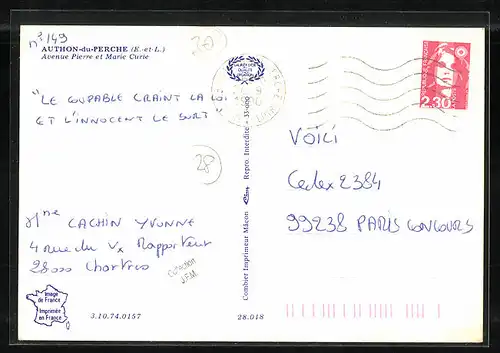 n° 149
20
AUTHON-du-PERCHE (E.-et-L.)
Avenue Pierre et Marie Curie
"LE COUPABLE CRAINT LA LOI
ET L'INNOCENT LE SORT"
28
Mme CACHIN YVONNE
4 rue du Vx Rapporteur
28000 Chartres
Collection
J.F.M.
Image
de France
Imprimée
en France
3.10.74.0157
28.018
Combier Imprimeur Mâcon
Repro. Interdite - 35-cinq
2,30
VOICI
Cedex 2384
99238 PARIS CONCOURS